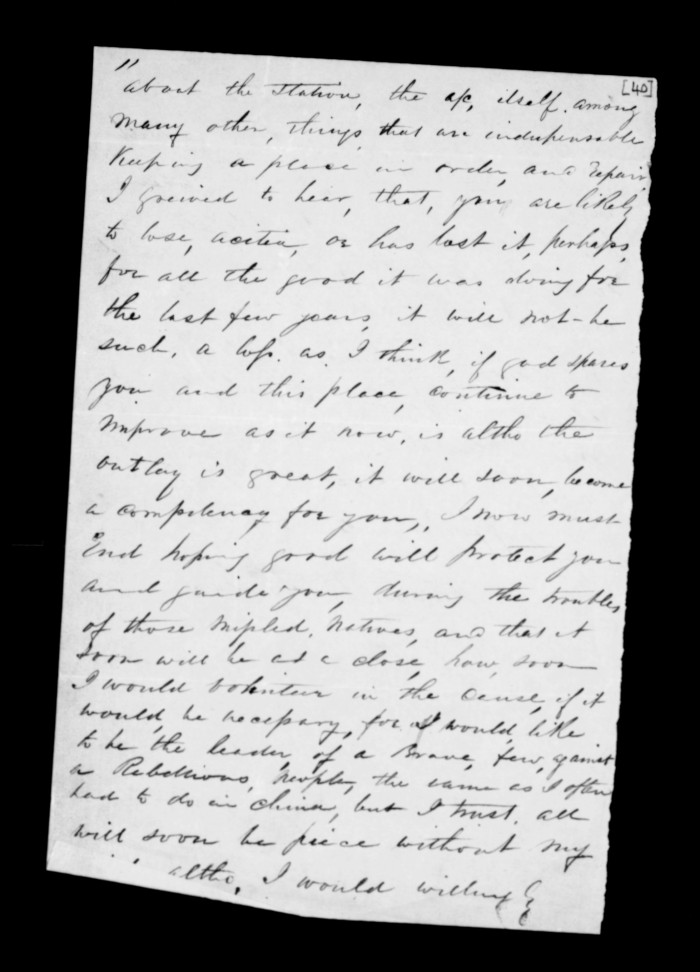 [40]
" about the station, the a/c, itself among
many other, things, that are indispensable
Keeping a place in order, and repair,
I greived to hear, that, you are likely
to lose, or has lost it, perhaps,
for all the good it was doing for
the last few years, it will not - be
such, a loss. as I think, if god spares
you and this place, continue to
improve as it now, is altho the
outlay is great, it will soon, become
a competency for you, I now must
End hoping good will protect you
and guide you, during the troubles
of those mispled, natives, and that it
soon will be at a close, how, soon
I would volunteer in the cause, if it
would, be necessary, for I would like
to be the leader, of a Brave, few, against
a Rebellious, people, the same as I often
had to do in China, but I trust. all
will soon be piece without my
altho, I would willing